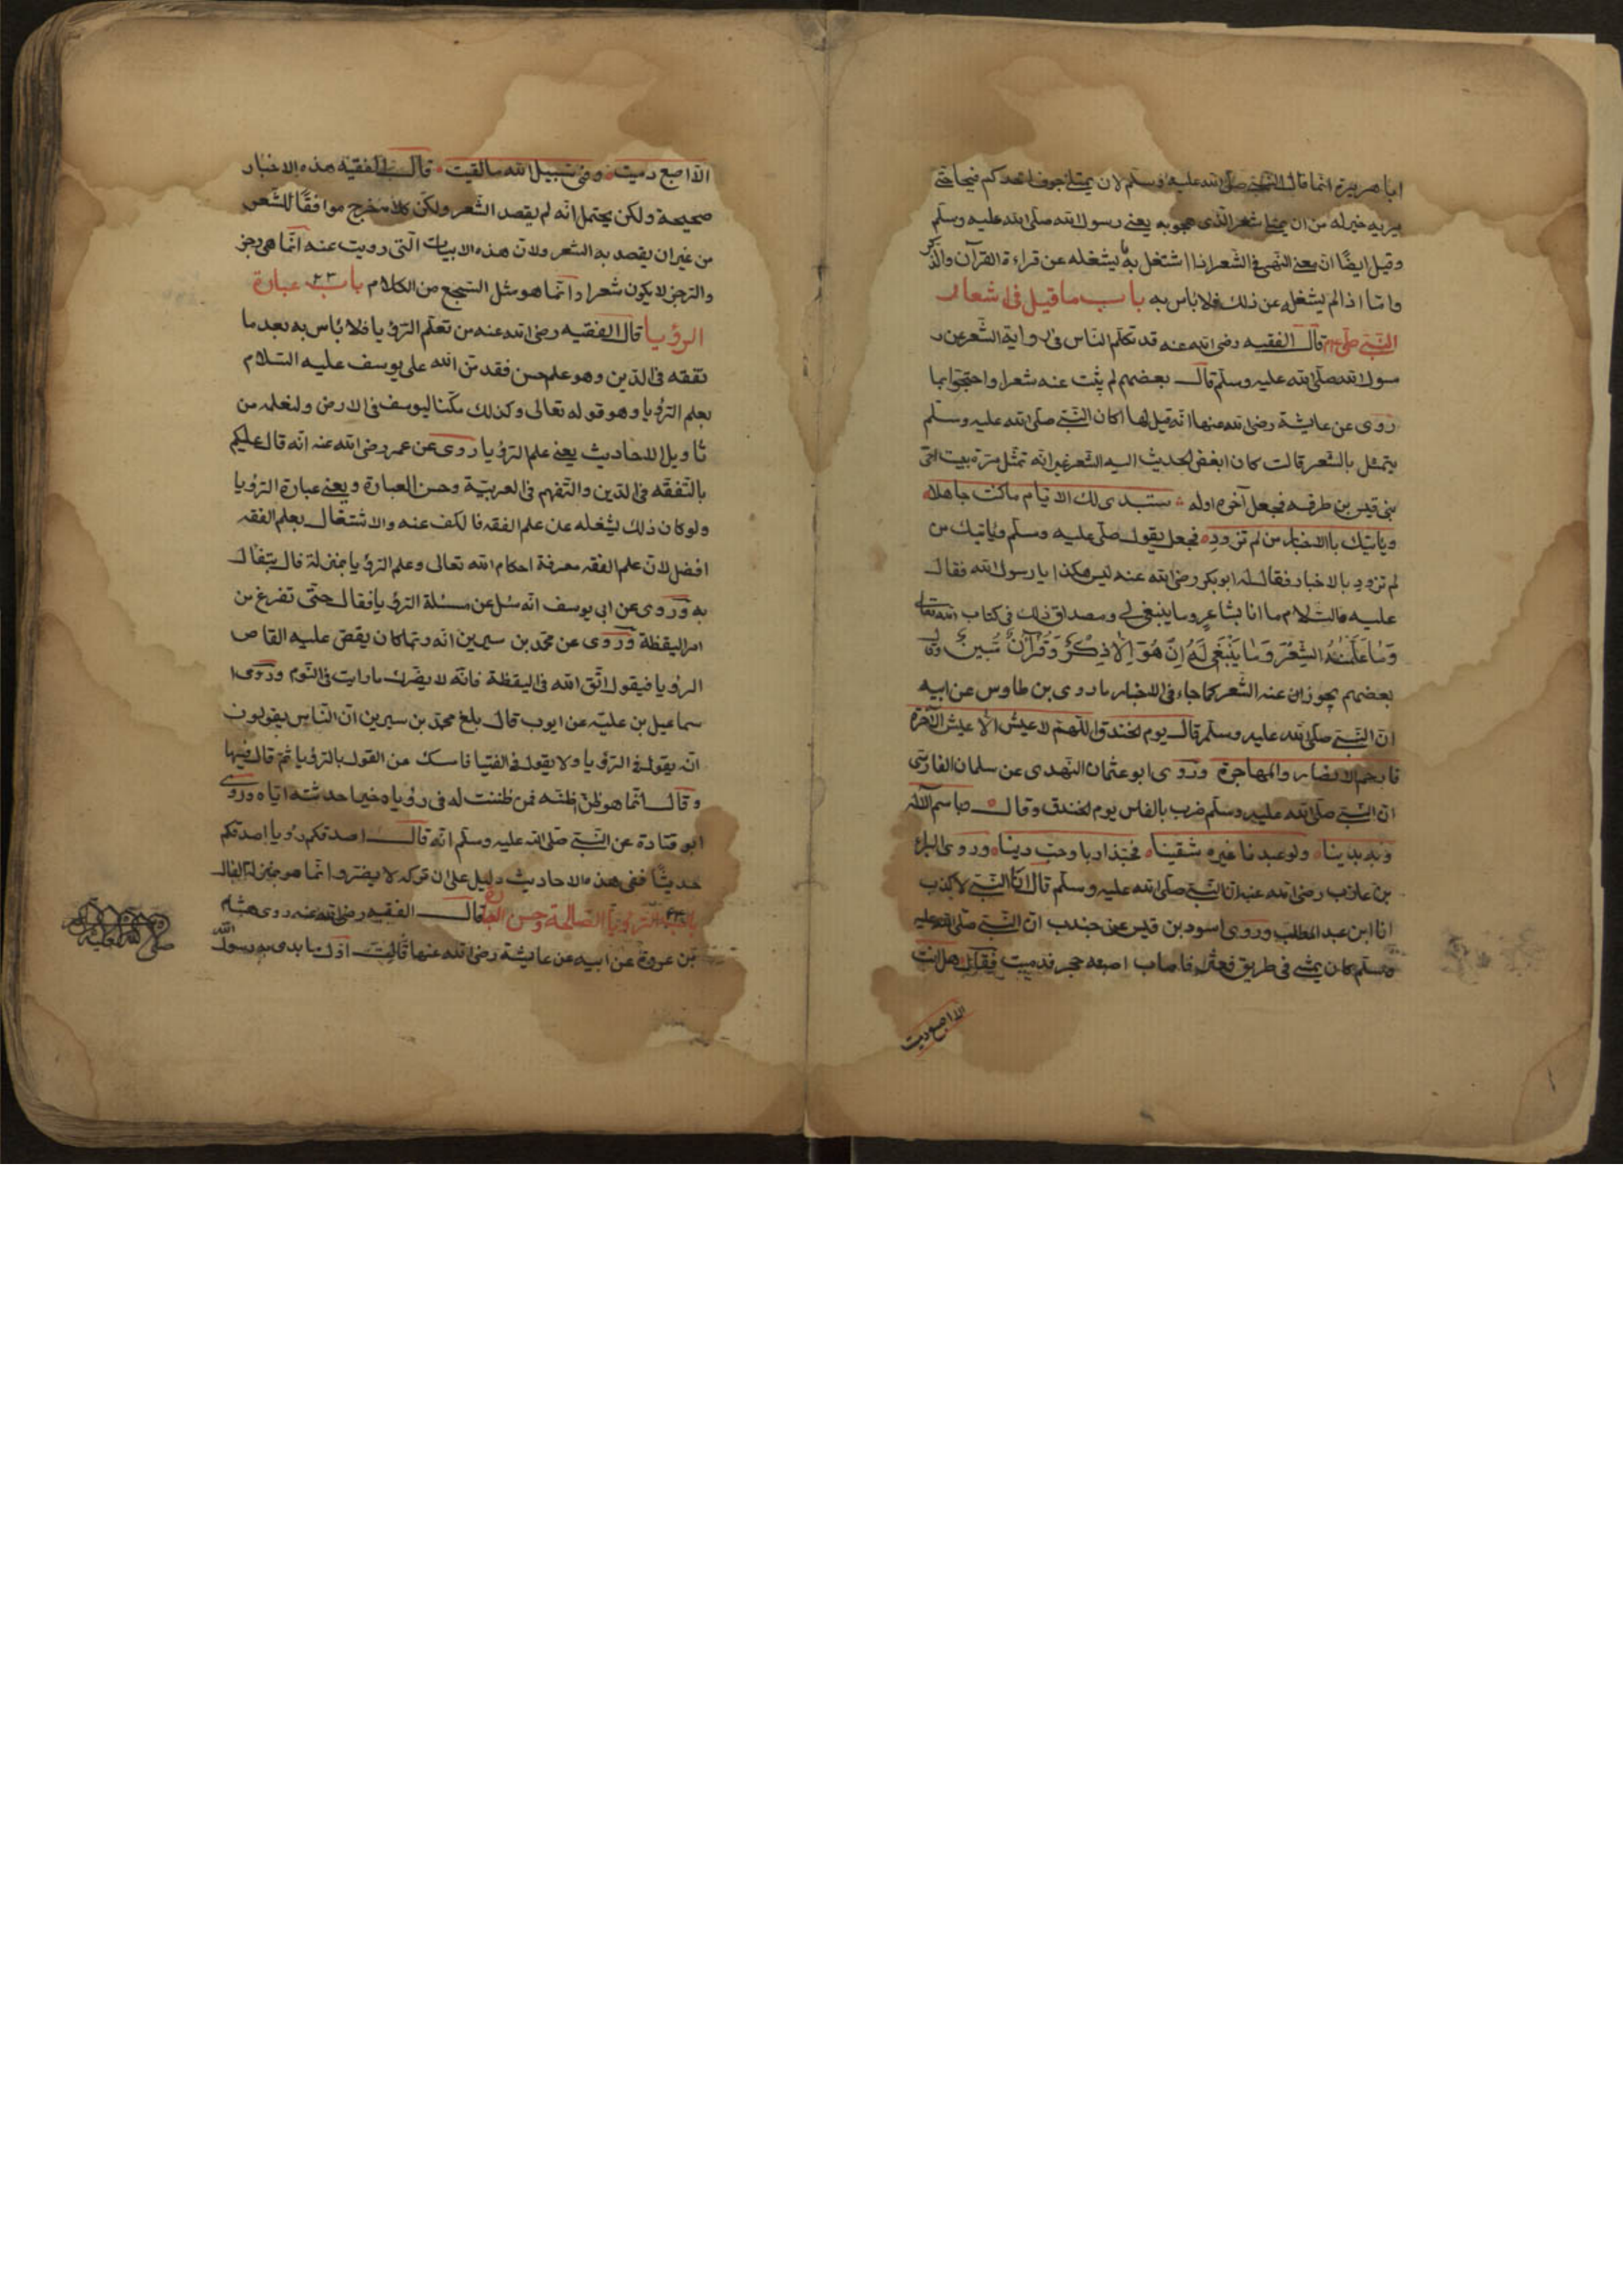 ابا هريرة انما قال النبي صلى الله عليه وسلم لان يمتلئ جوف احدكم قيحا حتى
يريه خير له من ان يمتلئ شعر الذى هجو به يعنى رسول الله صلى الله عليه وسلم
وقيل ايضًا انّ يعنى النهى فى الشعر اذا اشتغل به يشغله عن قراءة القرآن والذكر
واما اذا لم يشغله عن ذلك فلا باس به باب ما قيل فى اشعار
النبى صلى قال الفقيه رضى الله عنه قد تكلم الناس فى رواية الشعر عن ر
سول الله صلى الله عليه وسلم قال بعضهم لم يثبت عنه شعرا واحتجوا بما
روى عن عايشة رضى الله عنها انه قيل لها اكان النبى صلى الله عليه وسلم
يتمثل بالشعر قالت كان ابغض الحديث اليه الشعر غير انه تمثل مرة بيت اخى
بنى قيس بن طرفه فجعل آخره اوله ستبدى لك الايّام ما كنت جاهلا
وياتيك باالاخبار من لم تزودِ فجعل يقول صلى عليه وسلم وياتيك من
لم تزود بالاخبار فقال له ابوبكر رضى الله عنه ليس هكذا يا رسول الله فقال
عليه السلام ما انا بشاعرٍ وما ينبغى لى ومصداق ذلك فى كتاب الله تعالى
وَمَا عَلَّمْنَاهُ الشِّعْرَ وَمَا يَنْبَغِي لَهُ اِنْ هُوَ اِلَّا ذِكْرٌ وَقُرْآنٌ مُبِينٌ
بعضهم يجوز ان عنه الشعر كما جاء فى الاخبار ما روى بن طاوس عن ابيه
انّ النبى صلى الله عليه وسلم قال يوم الخندق اللهمّ لا عيش الا عيش الآخرة
فارحم الانصار والمهاجرة وروى ابو عثمان النهدى عن سلمان الفارسى
انّ النبى صلى الله عليه وسلم ضرب بالفاس يوم الخندق وقال باسم الله
وبه بدينا ولو عبدنا غيره شقينا فحبذا ربا وحب دينا وروى البراء
بن عازب رضى الله عنه ان النبى صلى الله عليه وسلم قال انا النبى لا كذب
انا ابن عبد المطلب وروى اسود بن قيس عن جندب انّ النبى صلى الله عليه
وسلم كان يمشى فى طريق فعثر فاصاب اصبعه حجر فدميت فقال هل انت
الا اصبع دميت
الّا اصبع دميت وفى سبيل الله ما لقيت قال الفقيه هذه الاخبار
صحيحة ولكن يحتمل انّه لم يقصد الشعر ولكن كلام خرج موافقًا للشعر
من غير ان يقصد به الشعر ولانّ هذه الابيات التى رويت عنه انّما هى رجز
والرجز لا يكون شعرا وانّما هو مثل السّجع من الكلام باب ٢٣ عبارة
الرؤيا قال الفقيه رضى الله عنه من تعلّم الرؤيا فلا باس به بعد ما
تفقه فى الدّين وهو علم حسن فقد منّ الله على يوسف عليه السّلام
بعلم الرّؤيا وهو قوله تعالى وكذلك مكّنا ليوسف فى الارض ولنعلمه من
تاويل الاحاديث يعنى علم الرؤيا روى عن عمر رضى الله عنه انه قال عليكم
بالتّفقه فى الدّين والتّفهم فى العربيّة وحسن العبارة ويعنى عبارة الرّؤيا
ولو كان ذلك يشغله عن علم الفقه فالكف عنه والاشتغال بعلم الفقه
افضل لانّ علم الفقه معرفة احكام الله تعالى وعلم الرؤيا بمنزلة فال يتفال
به وروى عن ابى يوسف انّه سُئل عن مسئلة الرّؤيا فقال حتى تفرغ من
امر اليقظة وروى عن محمّد بن سيرين انّه ربّما كان يقصّ عليه القاص
الرؤيا فيقول اتّق الله فى اليقظة فانّه لا يضرّك ما رايت فى النّوم وروى ا
سماعيل بن عليّه عن ايوب قال بلغ محمّد بن سيرين انّ النّاس يقولون
انّه يقول فى الرّؤيا ولا يقول فى الفتيا فامسك عن القول بالرّؤيا ثمّ قال فيها
وقال انّما هو ظنّ اظنّه فمن ظننت له فى رؤياه خيرا حدثته ايّاه وروى
ابو قتادة عن النّبى صلى الله عليه وسلم انّه قال اصدقكم رؤيا اصدقكم
حديثًا ففى هذه الاحاديث دليل على ان تركه لا يضرّ وانّما هو بمنزلة الفال
باب الرّؤيا الصّالحة وحسن قال الفقيه رضى الله عنه روى هشام
بن عروة عن ابيه عن عايشة رضى الله عنها قالت اوّل ما بدى به رسول الله
صلى الله عليه